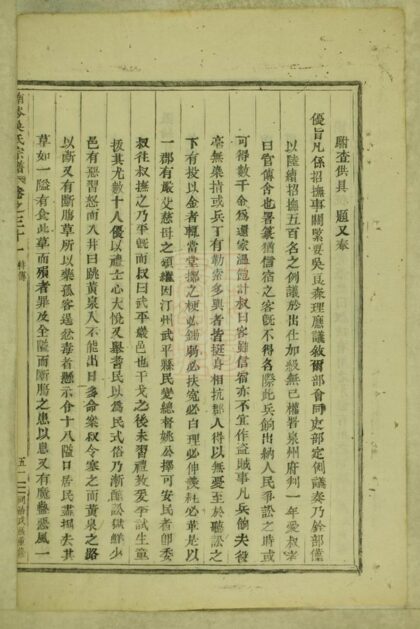 驗查供具　題又奉
優旨凡係招撫事關緊要吳良森理應議敘爾部會同吏部定例議奏乃幹部僅
以陸續招撫五百名之例議於出仕加級無已權署泉州府判一年愛叔宰
曰官傳舍也署篆猶信宿之客既不得名際此兵餉出納人民爭訟之時或
可得數千金為還家溫飽計叔曰客雖信宿亦不宜作盜賊事凡兵餉夫役
毫無染指或兵丁有勒索多與者皆挺身相抗郡人得以無憂至於聽訟之
下有投以金者輒當堂擲之梗必鋤弱必扶寃必白理必伸羨耗必革是以
一郡有嚴父慈母之頌繼因汀州武平縣民變總督姚公擇可安民者即委
叔往叔撫之乃平既而叔曰武平嚴邑也干戈之後未習禮教爰季試生童
拔其尤數十人優以禮士心大悅又舉耆民以為民式俗乃漸醇訟獄鮮少
邑有惡習怒而入井曰跳黃泉入不能出日多命案叔令塞之而黃泉之路
以斷又有斷腸草所以藥孤客逞忿毒者懸示合十八隘口居民盡掘去其
草如一隘有食此草而殞者罪及全隘而斷腸之患以息又有魔魅惡風一
吳氏宗譜　卷之三十一　特傳